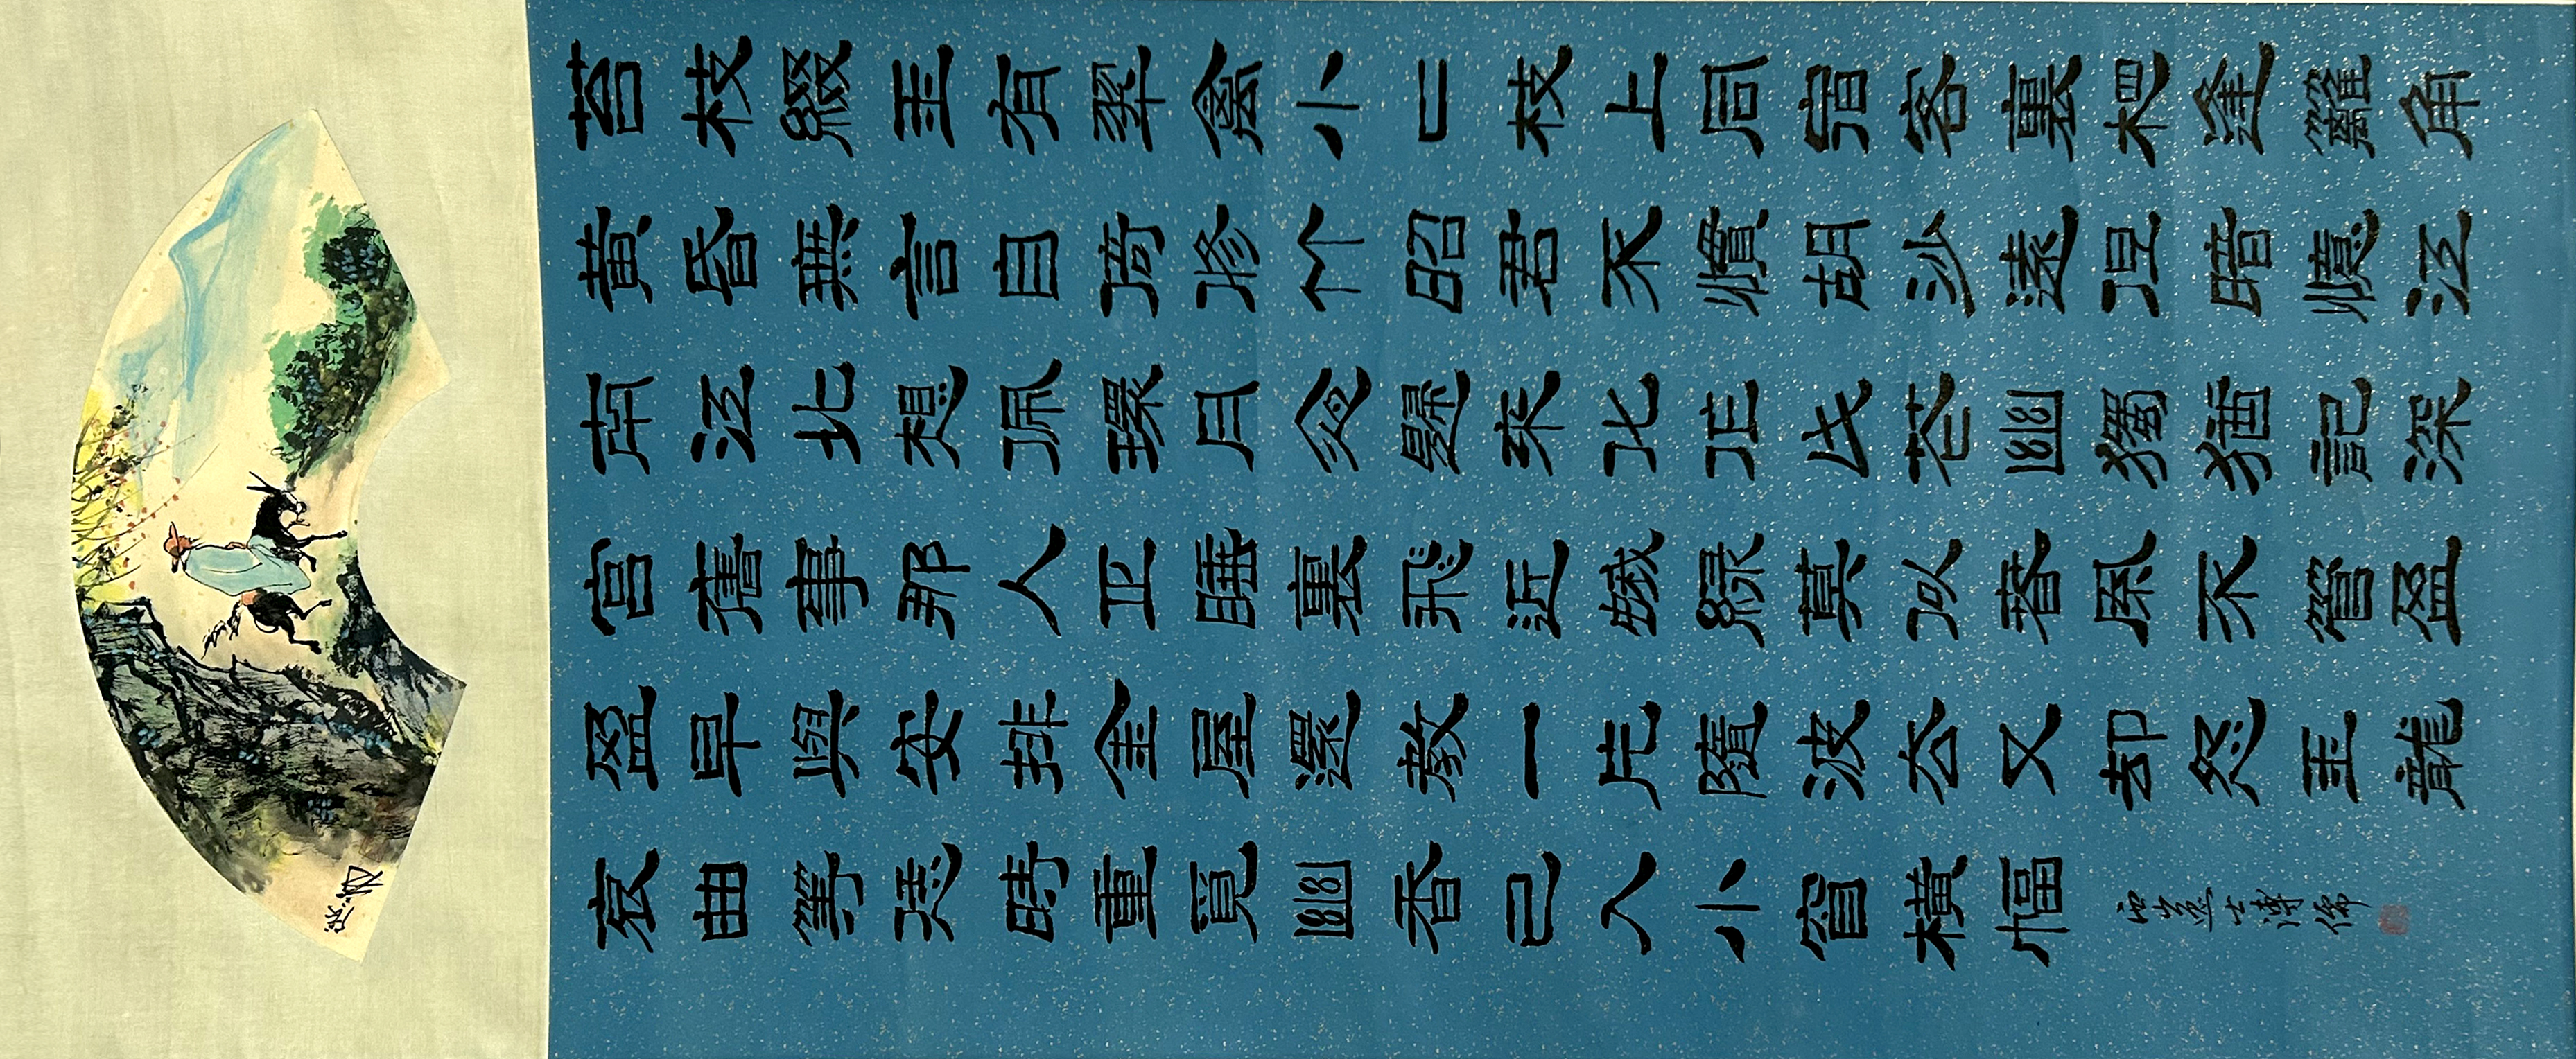 苔枝綴玉有翠禽小二枝上同宿客裏相逢籬角
黄昏無言自倚修竹昭君不慣胡沙遠但暗憶江
南江北想佩環月夜歸來化作此花幽獨猶記深
宮舊事那人正睡裏飛近蛾綠莫似春風不管盈
盈早與安排金屋還教一片隨波去又卻怨玉龍
哀曲等恁時重覓幽香已入小窗橫幅